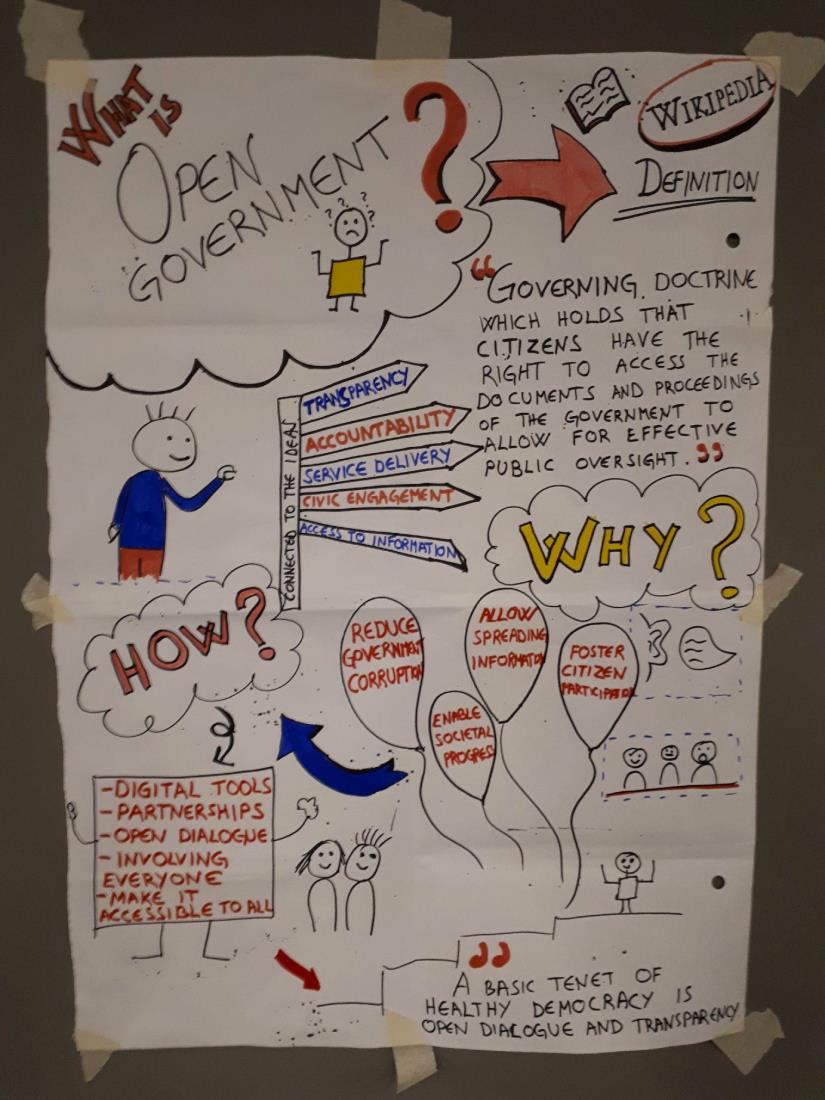 WHAT
IS
OPEN
GOVERNMENT?
? ? ? ?
WIKIPEDIA
DEFINITION
“GOVERNING DOCTRINE
WHICH HOLDS THAT
CITIZENS HAVE THE
RIGHT TO ACCESS THE
DOCUMENTS AND PROCEEDINGS
OF THE GOVERNMENT TO
ALLOW FOR EFFECTIVE
PUBLIC OVERSIGHT.”
CONNECTED TO THE IDEAS
TRANSPARENCY
ACCOUNTABILITY
SERVICE DELIVERY
CIVIC ENGAGEMENT
ACCESS TO INFORMATION
WHY?
REDUCE
GOVERNMENT
CORRUPTION
ENABLE
SOCIETAL
PROGRESS
ALLOW
SPREADING
INFORMATION
FOSTER
CITIZEN
PARTICIPATION
HOW?
-DIGITAL TOOLS
-PARTNERSHIPS
-OPEN DIALOGUE
-INVOLVING
EVERYONE
-MAKE IT
ACCESSIBLE TO ALL
”
A BASIC TENET OF
HEALTHY DEMOCRACY IS
OPEN DIALOGUE AND TRANSPARENCY